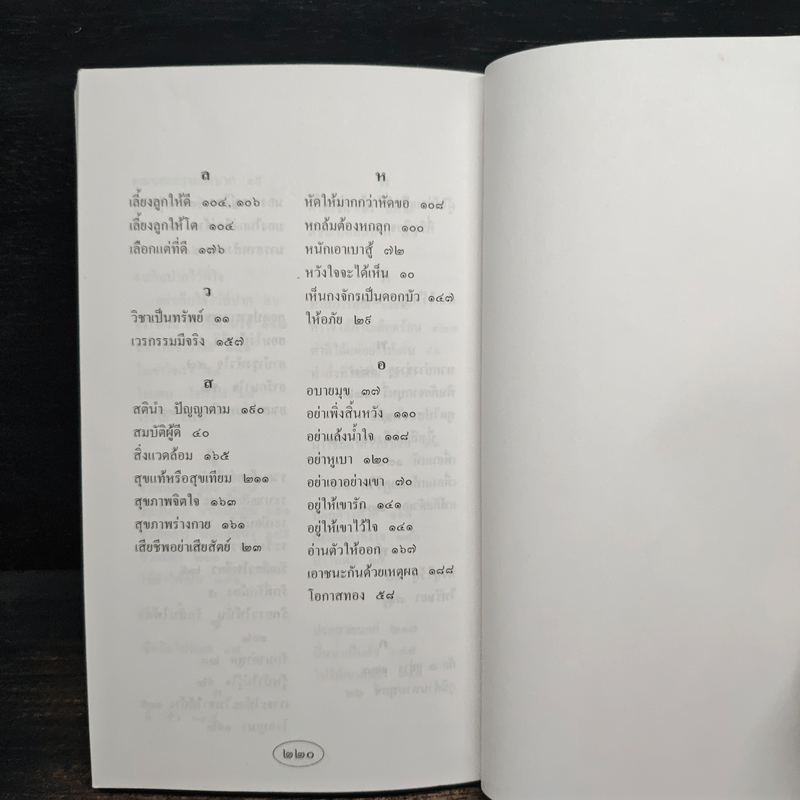 ล
เลี้ยงลูกให้ดี ๑๐๔, ๑๐๖
เลี้ยงลูกให้โต ๑๐๔
เลือกแต่ที่ดี ๑๗๖
ว
วิชาเป็นทรัพย์ ๑๑
เวรกรรมมีจริง ๑๕๗
ส
สตินำ ปัญญาตาม ๑๙๐
สมบัติผู้ดี ๔๐
สิ่งแวดล้อม ๑๖๕
สุขแท้หรือสุขเทียม ๒๑๑
สุขภาพจิตใจ ๑๖๓
สุขภาพร่างกาย ๑๖๑
เสียชีพอย่าเสียสัตย์ ๒๓
ห
หัดให้มากกว่าหัดขอ ๑๐๘
หกล้มต้องหกลุก ๑๐๐
หนักเอาเบาสู้ ๗๒
หวังใจจะได้เห็น ๑๐
เห็นกงจักรเป็นดอกบัว ๑๔๗
ให้อภัย ๒๙
อ
อบายมุข ๓๗
อย่าเพิ่งสิ้นหวัง ๑๑๐
อย่าแล้งน้ำใจ ๑๑๘
อย่าหูเบา ๑๒๐
อย่าเอาอย่างเขา ๗๐
อยู่ให้เขารัก ๑๔๑
อยู่ให้เขาไว้ใจ ๑๔๑
อ่านตัวให้ออก ๑๖๗
เอาชนะกันด้วยเหตุผล ๑๘๘
โอกาสทอง ๕๘
๒๒๐